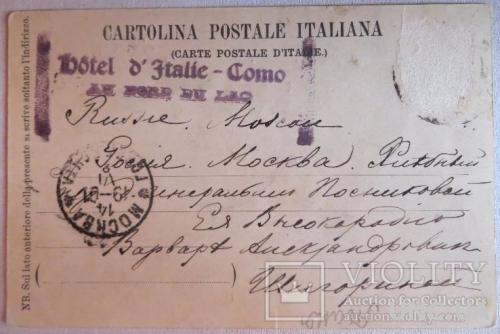 CARTOLINA POSTALE ITALIANA
(CARTE POSTALE D'ITALIE.)
Hôtel d'Italie - Como
AU NORD DU LAC
Russie. Moscou
Россия. Москва. Хлѣбный
генеральши Посниковой
Ея Высокородію
Варварѣ Александровнѣ
МОСКВА
14
NB. Sul lato anteriore della presente si scrive soltanto l'indirizzo.
VIOLITY
Auction for Collectors